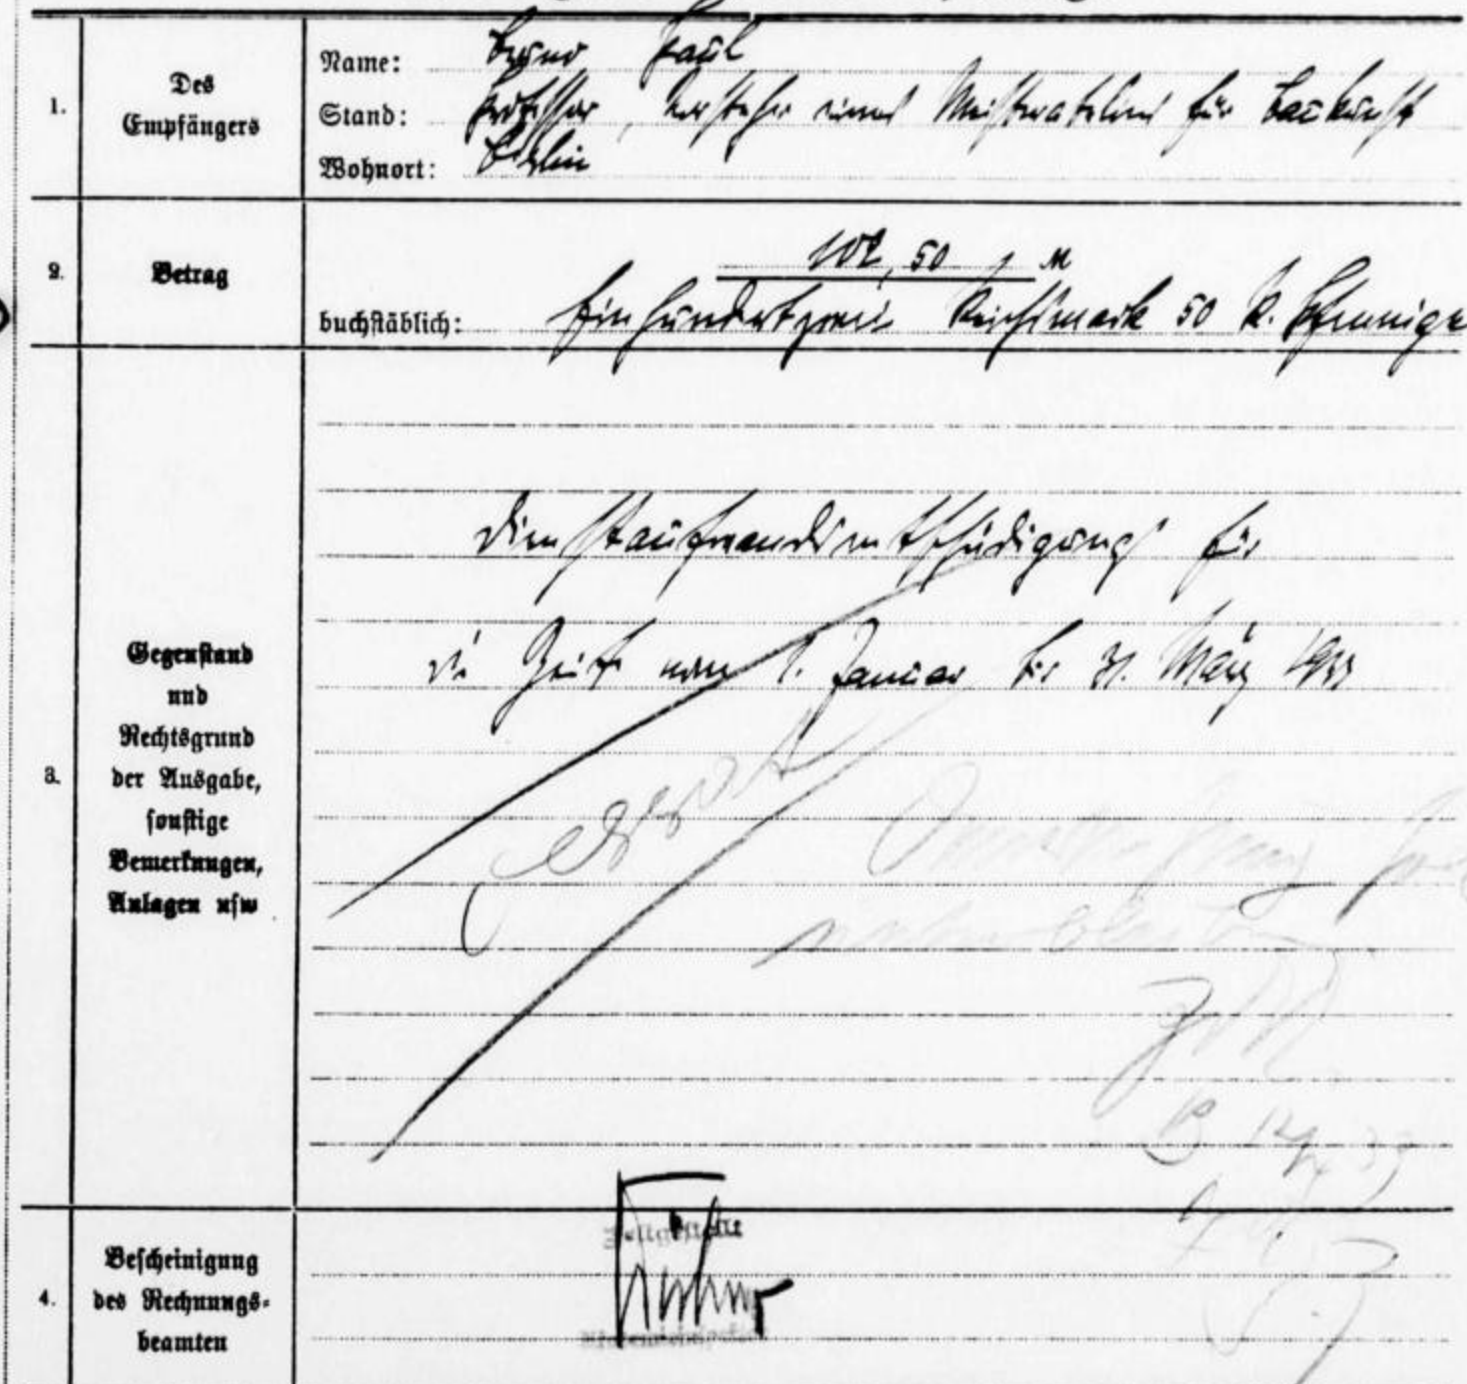 1.
Des
Empfängers
Name: Bruno Paul
Stand: Professor, Vorsteher eines Meisterateliers für Baukunst
Wohnort: Berlin
2.
Betrag
102,50 M
buchstäblich: Einhundertzwei Reichsmark 50 R. Pfennige
3.
Gegenstand
und
Rechtsgrund
der Ausgabe,
sonstige
Bemerkungen,
Anlagen usw
Dienstaufwandsentschädigung für
die Zeit vom 1. Januar bis 31. März 1933
4.
Bescheinigung
des Rechnungs-
beamten